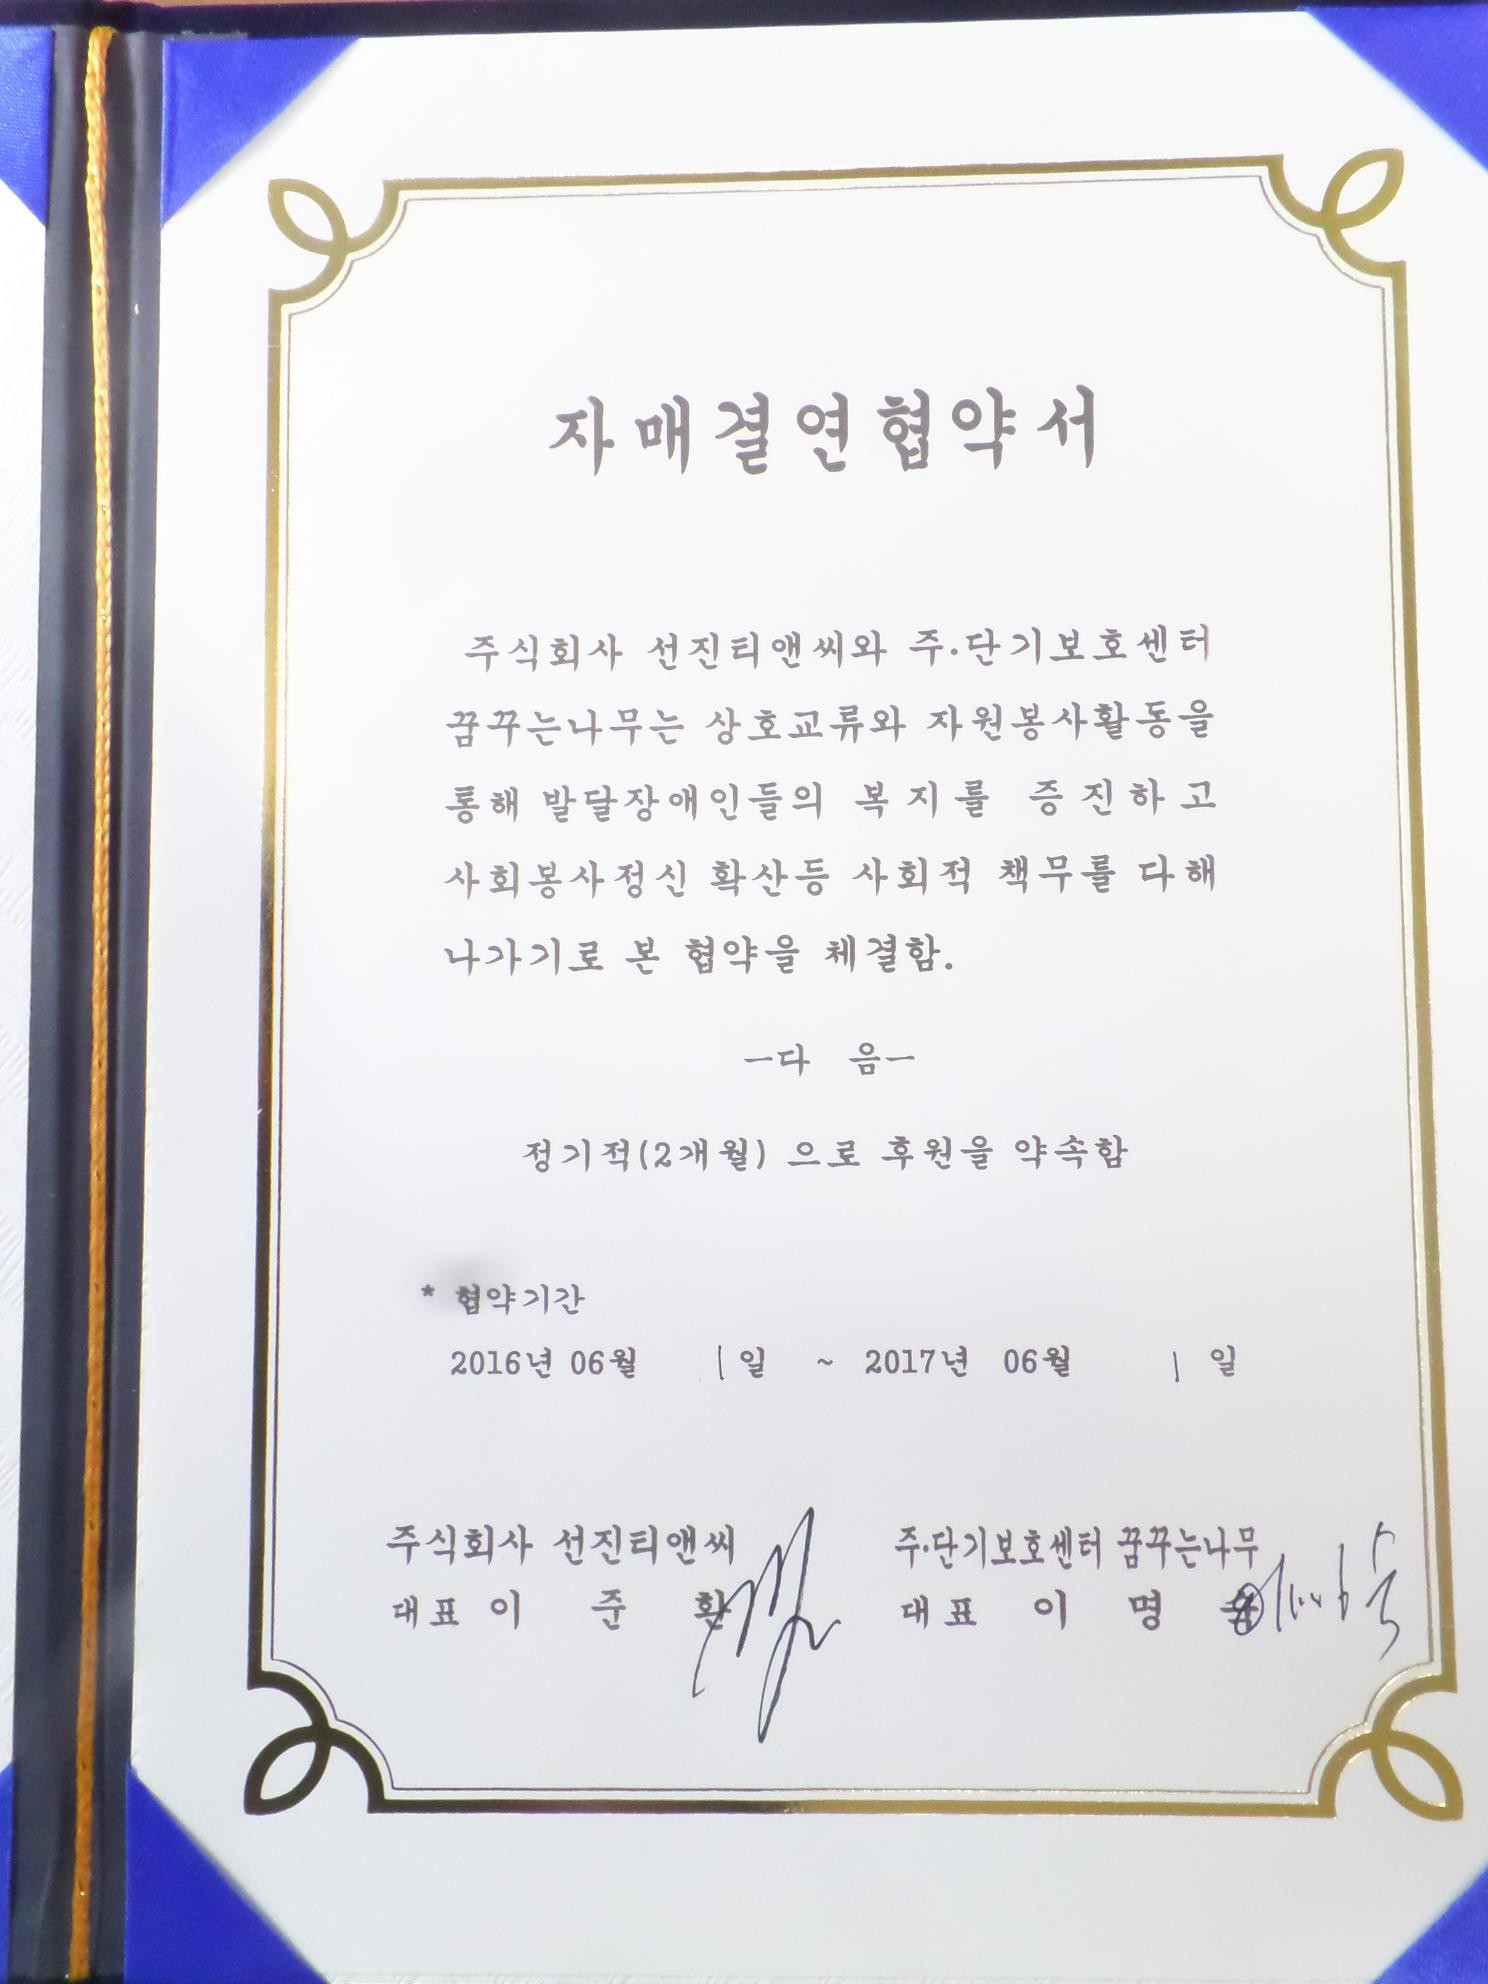 자매결연협약서
주식회사 선진티앤씨와 주·단기보호센터
꿈꾸는나무는 상호교류와 자원봉사활동을
통해 발달장애인들의 복지를 증진하고
사회봉사정신 확산등 사회적 책무를 다해
나가기로 본 협약을 체결함.
-다 음-
정기적(2개월) 으로 후원을 약속함
* 협약기간
2016년 06월 1일 ~ 2017년 06월 1일
주식회사 선진티앤씨 주·단기보호센터 꿈꾸는나무
대표 이 준 환 대표 이 명